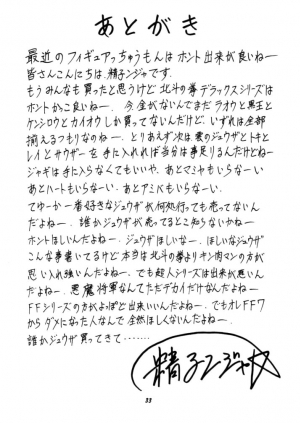 あとがき
最近のフィギュアっちゅうもんはホント出来が良いねー
皆さんこんにちは、精子ンジャです。
もうみんなも買ったと思うけど北斗の拳デラックスシリーズは
ホントかっこ良いねー。今金がないんでまだラオウと黒王と
ケンシロウとカイオウしか買ってないんだけど、いずれは全部
揃えるつもりなのねー。とりあえず次は雲のジュウザとトキと
レイとサウザーを手に入れれば当分は事足りるんだけどねー
ジャギは手に入らなくてもいいや、あとマミヤもいらないー
あとハートもいらないー、あとアミバもいらないー。
てゆーか一番好きなジュウザが何処行っても売ってないん
だよねー。誰かジュウザが売ってるとこ知らないかねー
ホントほしいんだよねー。ジュウザほしいなー。ほしいなジュウザ
こんな事書いてるけど本当は北斗の拳よりキン肉マンの方が
思い入れ強いんだよねー。でも超人シリーズは出来が悪いん
だよねー。悪魔将軍なんてただデカイだけなんだよねー
FFシリーズの方がよっぽど出来いいんだよねー。でもオレFF7
からダメになった人なんで全然ほしくないんだよねー。
誰かジュウザ買ってきて……
精子ンジャ
33